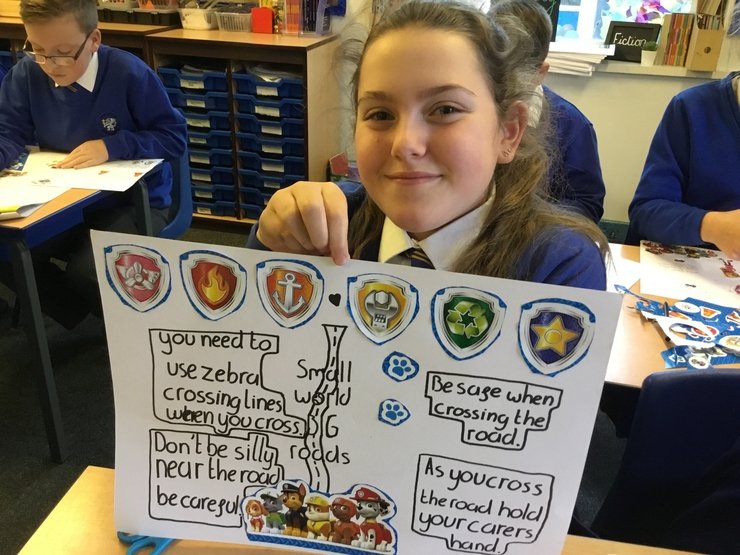 Fiction
you need to
use zebra
crossing lines
when you cross.
Don't be silly
near the road
be careful.
Small
world
BIG
roads
Be sage when
crossing the
road.
As you cross
the road hold
your carers
hand.